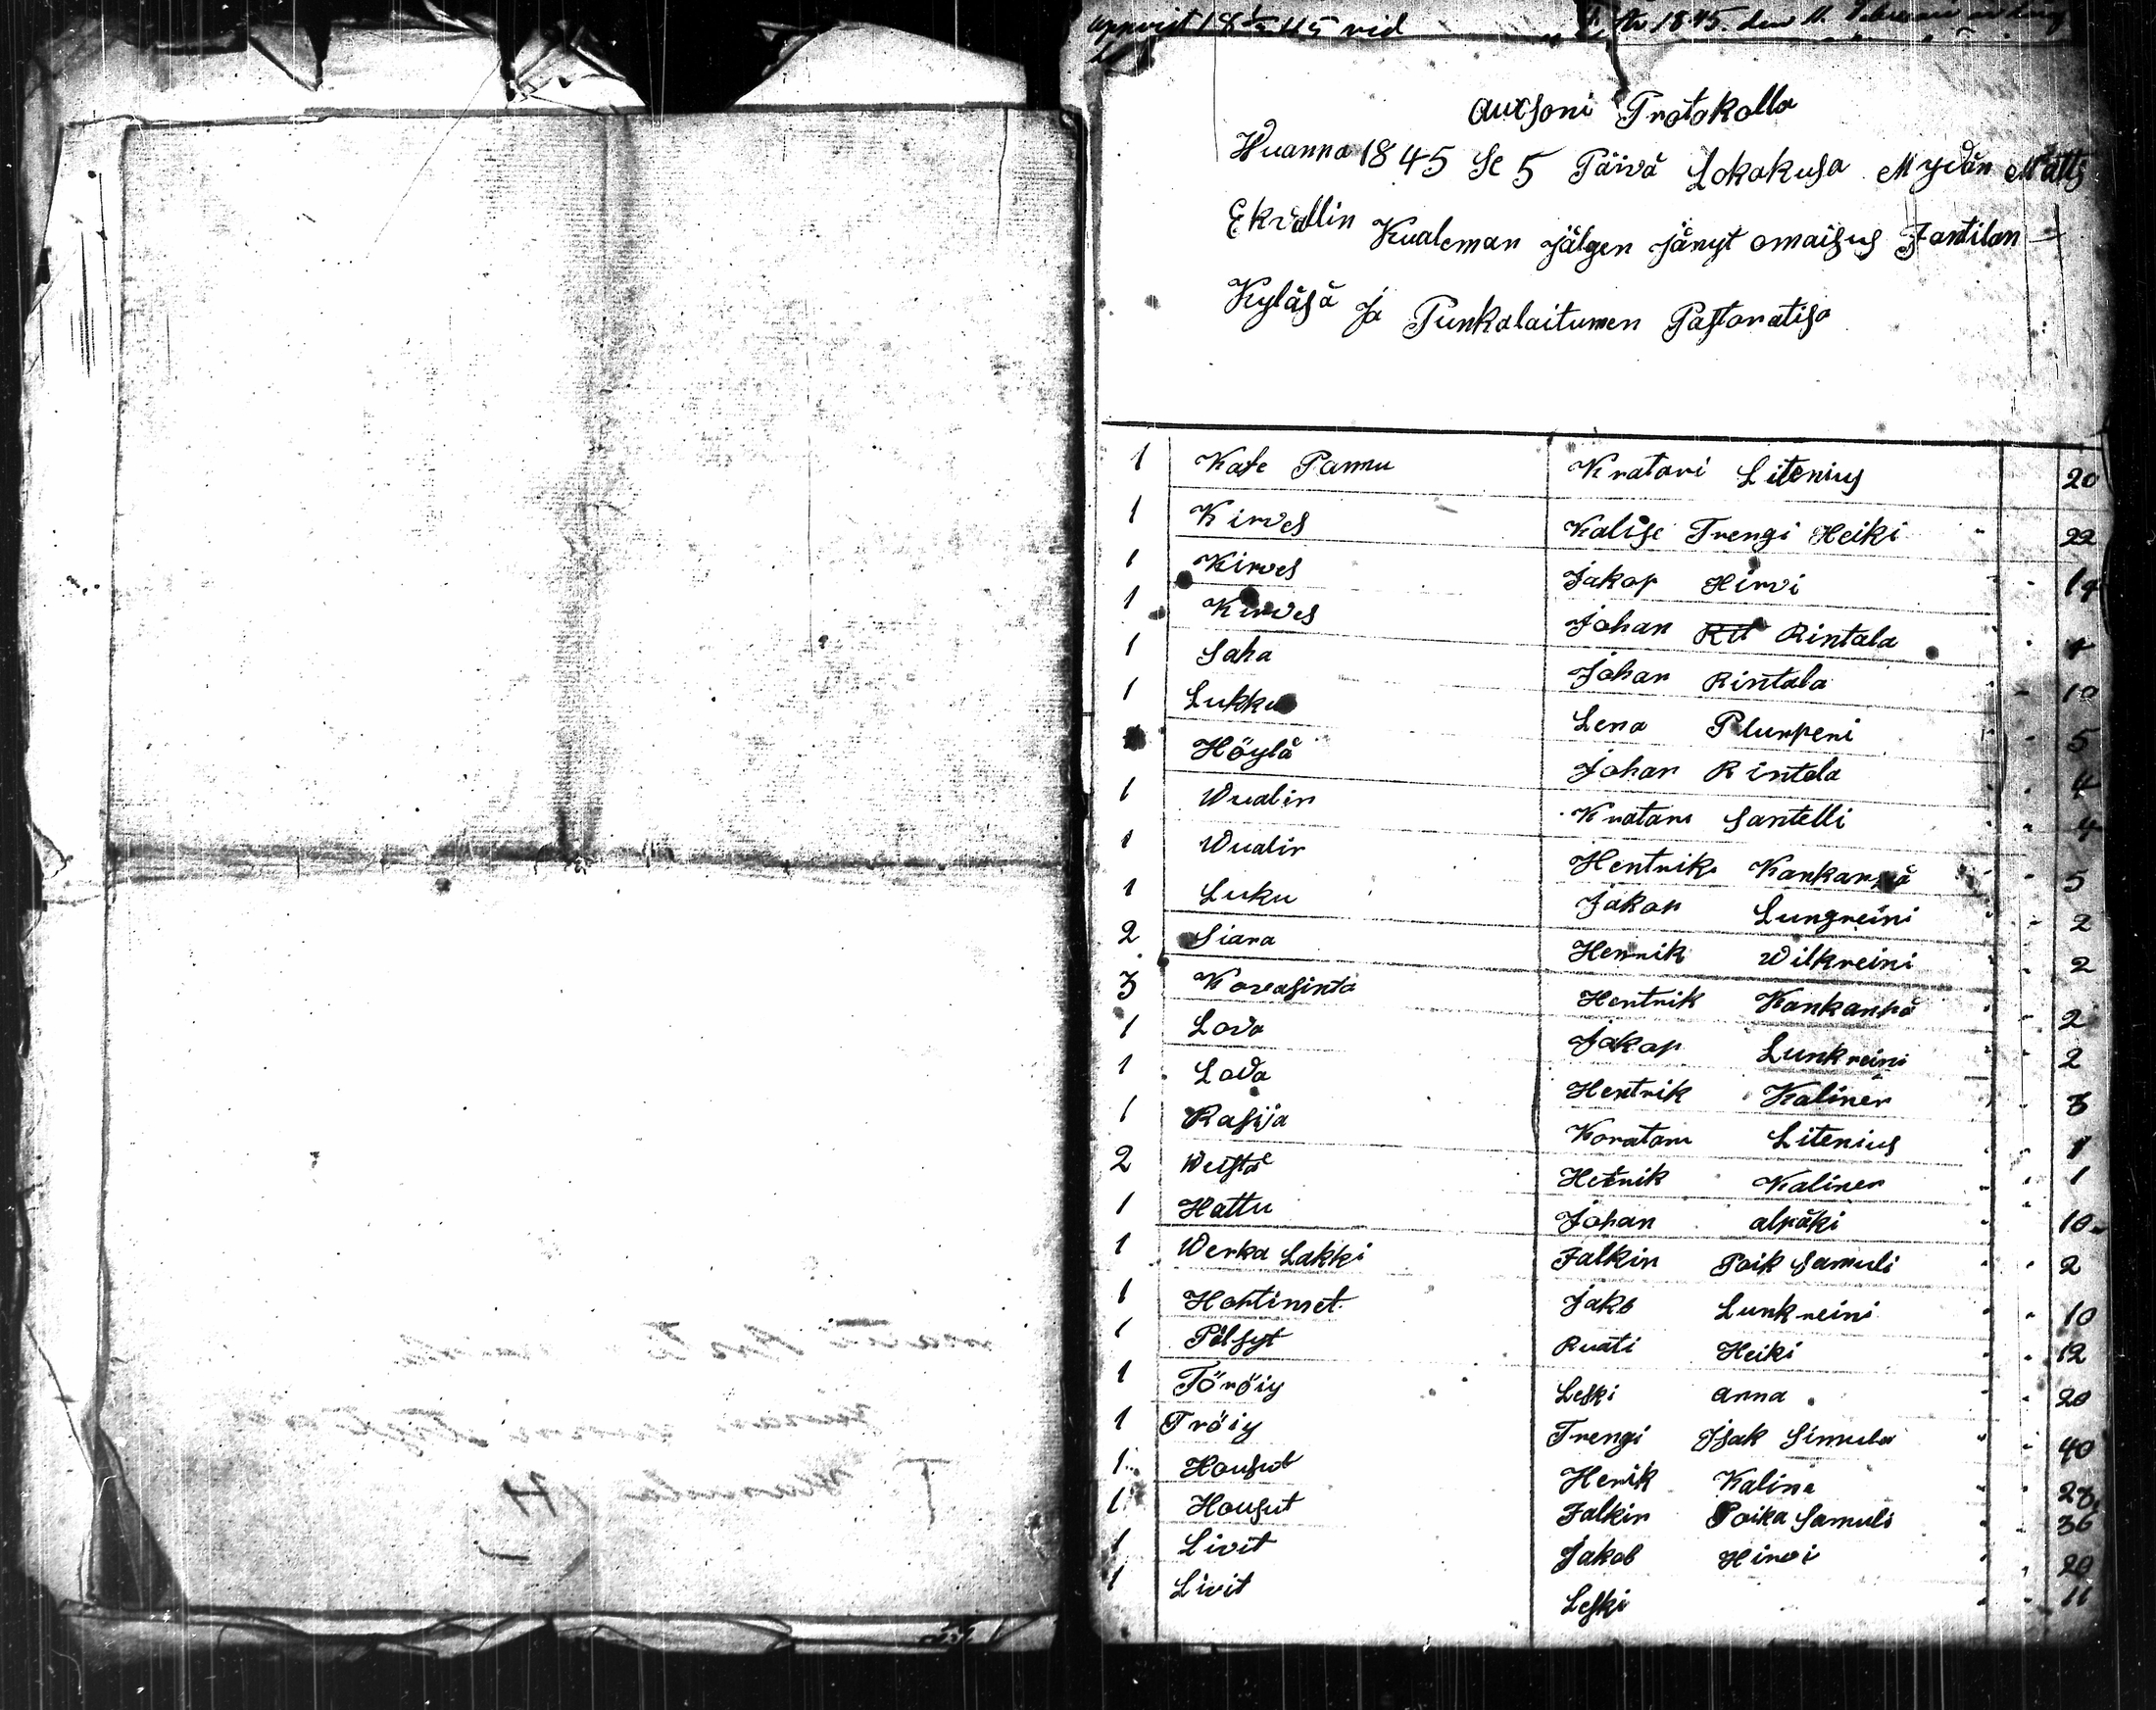 År 1845. den 11.
Aucsoni Protokolla
Wuanna 1845 Se 5 Päivä Lokakusa Mydän Matts
Ekvallin Kualeman jälgen jänyt omaisus Jantilan
Kyläsä ja Punkalaitumen Pastoratisa
1 Kafe Pannu Kratari Litenius 20
1 Kirves Kalise Trengi Heiki 22
1 Kirves Jakop Hirvi 14
1 Kirves Johan Rintala
1 Saha Johan Rintala 10
1 Lukku Lena Plumpeni 5
Höylä Johan Rintala 4
1 Wualin Kratari Santelli 4
1 Wualin Hentrik Kankanpä 5
1 Luku Jakop Lungreini 2
2 Siara Henrik Wilkreini 2
3 Korvasinta Hentrik Kankanpä 2
1 Lova Jakop Lunkreini 2
1 Lova Hentrik Kalinen 3
1 Rasija Koratari Litenius 1
2 Weistä Henrik Kalinen 1
1 Hattu Johan alpäki 10
1 Werka Lakki Falkin Poik Samuli 2
1 Hohtimet Jakb Lunkreini 10
1 Pölsyt Ruati Heiki 12
1 Töröiy Leski anna 20
1 Tröiy Trengi Isak Simula 40
1 Housut Henrik Kaline
1 Housut Falkin Poika Samuli 36
1 Livit Jakob Hirvi 20
1 Livit Leski 11